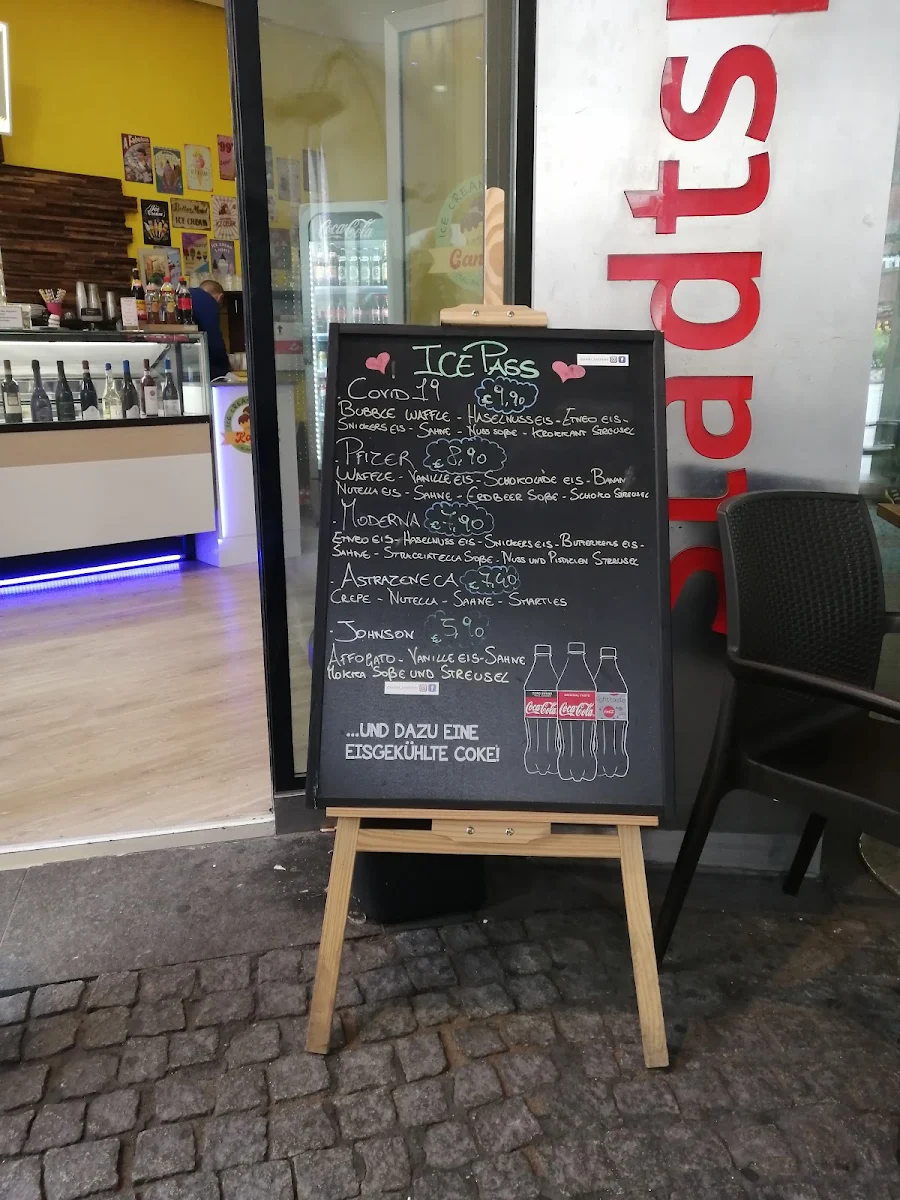 ICE PASS
COVID 19 € 9,90
BUBBLE WAFFLE - HASELNUSS EIS - ETNEO EIS -
SNICKERS EIS - SAHNE - NUSS SOßE - KROKKANT STREUSEL
· PFIZER € 8,90
WAFFLE - VANILLE EIS - SCHOKOLADE EIS - BANAN
NUTELLA EIS - SAHNE - ERDBEER SOßE - SCHOKO STREUSEL
· MODERNA € 7,90
ETNEO EIS - HASELNUSS EIS - SNICKERS EIS - BUTTERKEKS EIS -
SAHNE - STRACCIATELLA SOßE - NUSS UND PISTAZIEN STREUSEL
· ASTRAZENECA € 7,40
CREPE - NUTELLA - SAHNE - SMARTIES
· JOHNSON € 5,90
AFFOGATO - VANILLE EIS - SAHNE
MOKKA SOßE UND STREUSEL
...UND DAZU EINE
EISGEKÜHLTE COKE!
Coca-Cola
Coca-Cola
Coca-Cola
ICE CREAM
ICE CREAM